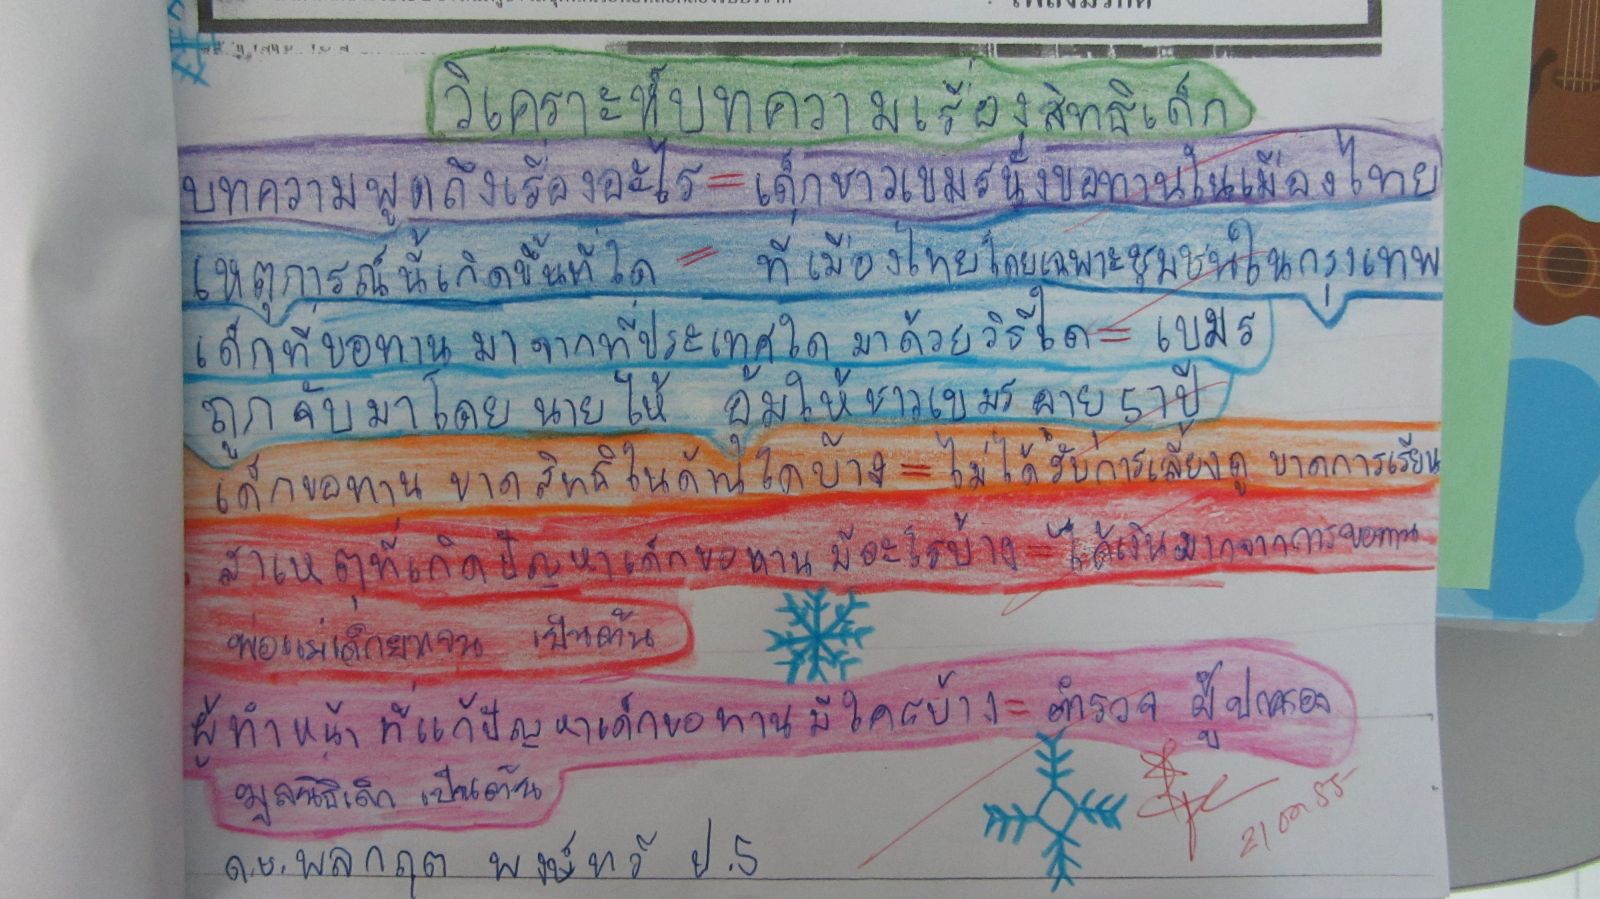 วิเคราะห์บทความเรื่องสิทธิเด็ก
บทความพูดถึงเรื่องอะไร = เด็กชาวเขมรนั่งขอทานในเมืองไทย
เหตุการณ์นี้เกิดขึ้นที่ใด = ที่เมืองไทยโดยเฉพาะชุมชนในกรุงเทพ
เด็กที่ขอทาน มาจากที่ประเทศใด มาด้วยวิธีใด = เขมร
ถูกจับมาโดย นายไห้ อุ้มให้ชาวเขมร อายุ 57 ปี
เด็กขอทาน ขาดสิทธิในด้านใดบ้าง = ไม่ได้รับการเลี้ยงดู ขาดการเรียน
สาเหตุที่เกิดปัญหาเด็กขอทาน มีอะไรบ้าง = ได้เงินมากจากการขอทาน
พ่อแม่เด็กยากจน เป็นต้น
ผู้ทำหน้าที่แก้ปัญหาเด็กขอทาน มีใครบ้าง = ตำรวจ ผู้ปกครอง
มูลนิธิเด็ก เป็นต้น
ด.ช. พลกฤต พงษ์ทวี ป.5